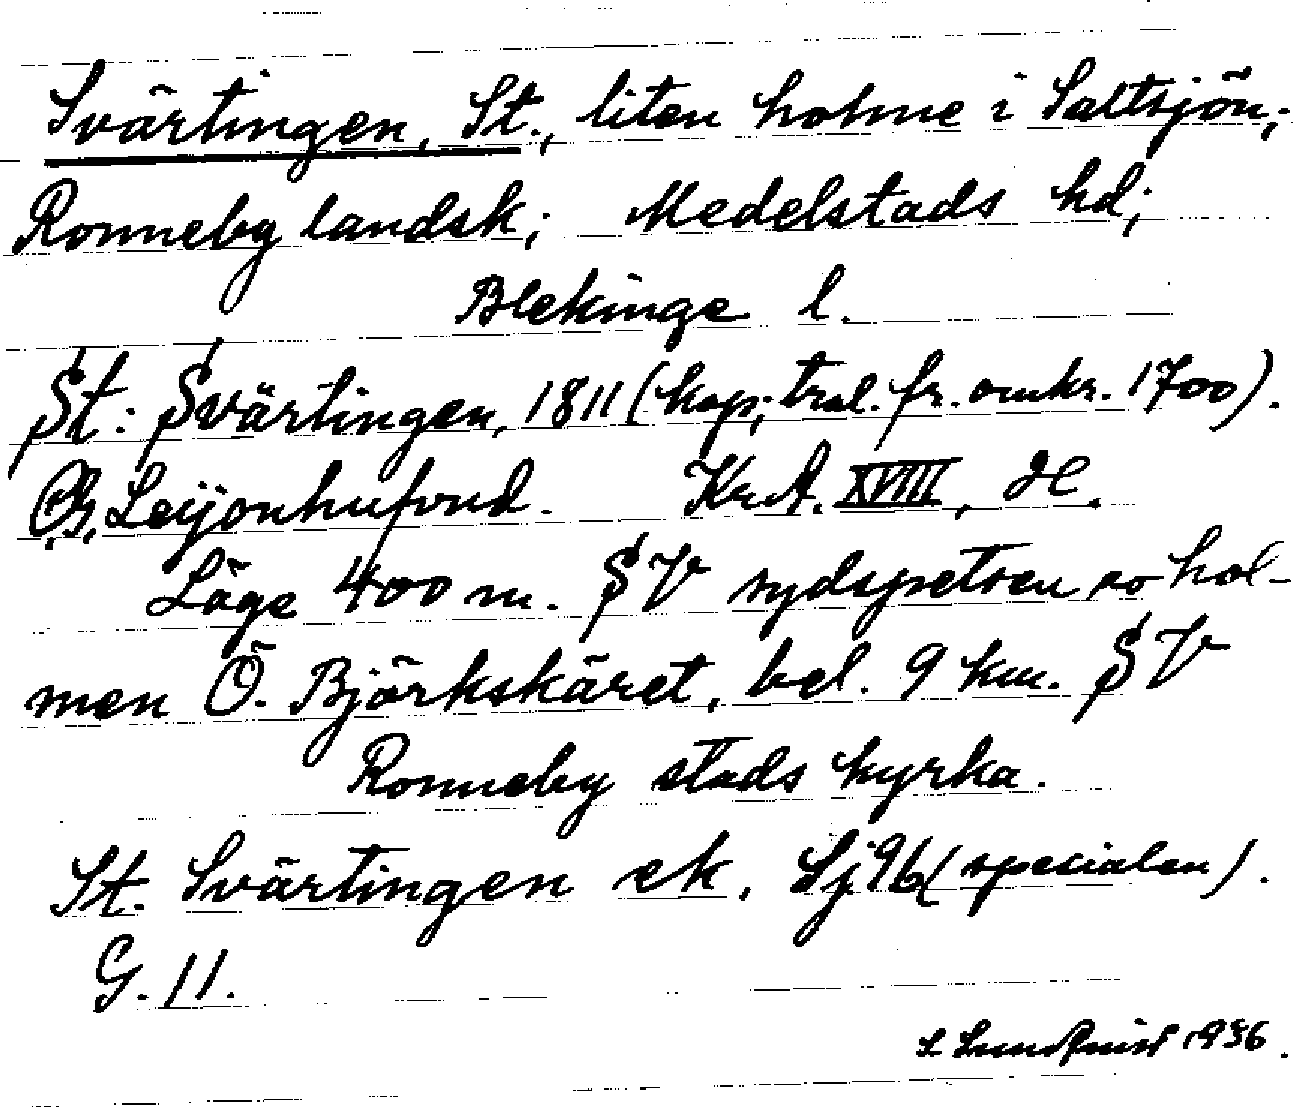 Svärtingen, St., liten holme i Saltsjön;
Ronneby landsk; Medelstads hd;
Blekinge l.
St: Svärtingen, 1811 (kop; tral. fr. omkr. 1700).
Leijonhufvud. Kr.A. XVIII, H.
Läge 400 m. SV sydspetsen av hol-
men Ö. Björkskäret, bel. 9 km. SV
Ronneby stads kyrka.
St. Svärtingen ek. Sj 96 (specialen).
G. 11.
L Lundquist 1936.